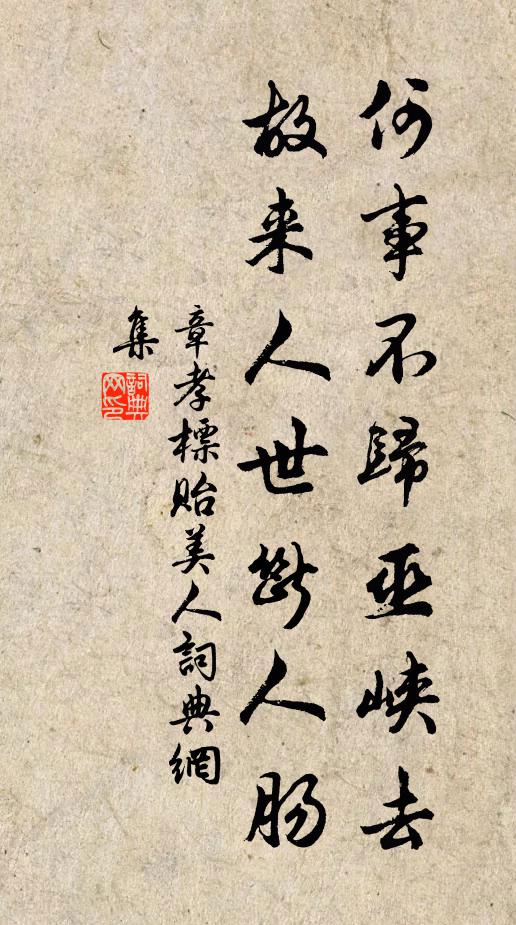 何事不歸巫峽去
故来人世斷人腸
章孝標貽美人詞典網
集
詞典网印